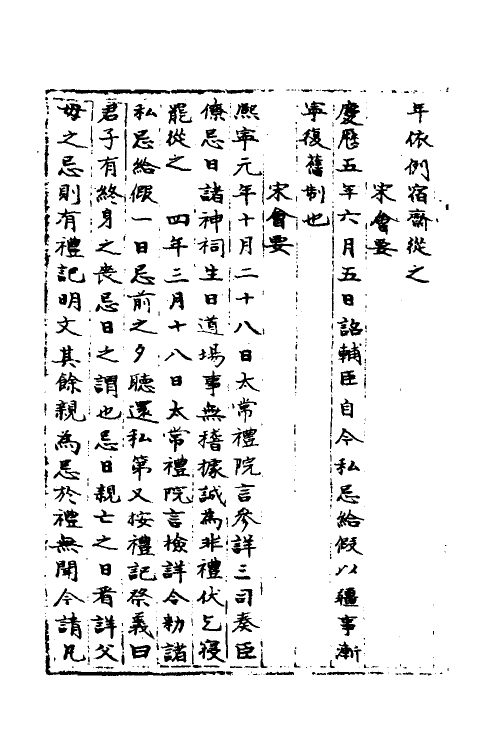 年依例宿齋從之
宋會要
慶曆五年六月五日詔輔臣自今私忌給假以疆事漸
寧復舊制也
宋會要
熙寧元年十月二十八日太常禮院言參詳三司奏臣
僚忌日諸神祠生日道場事無稽據誠為非禮伏乞寢
罷從之　四年三月十八日太常禮院言檢詳令勑諸
私忌給假一日忌前之夕聽還私第又按禮記祭義曰
君子有終身之喪忌日之謂也忌日親亡之日看詳父
母之忌則有禮記明文其餘親為忌於禮無聞今請凡